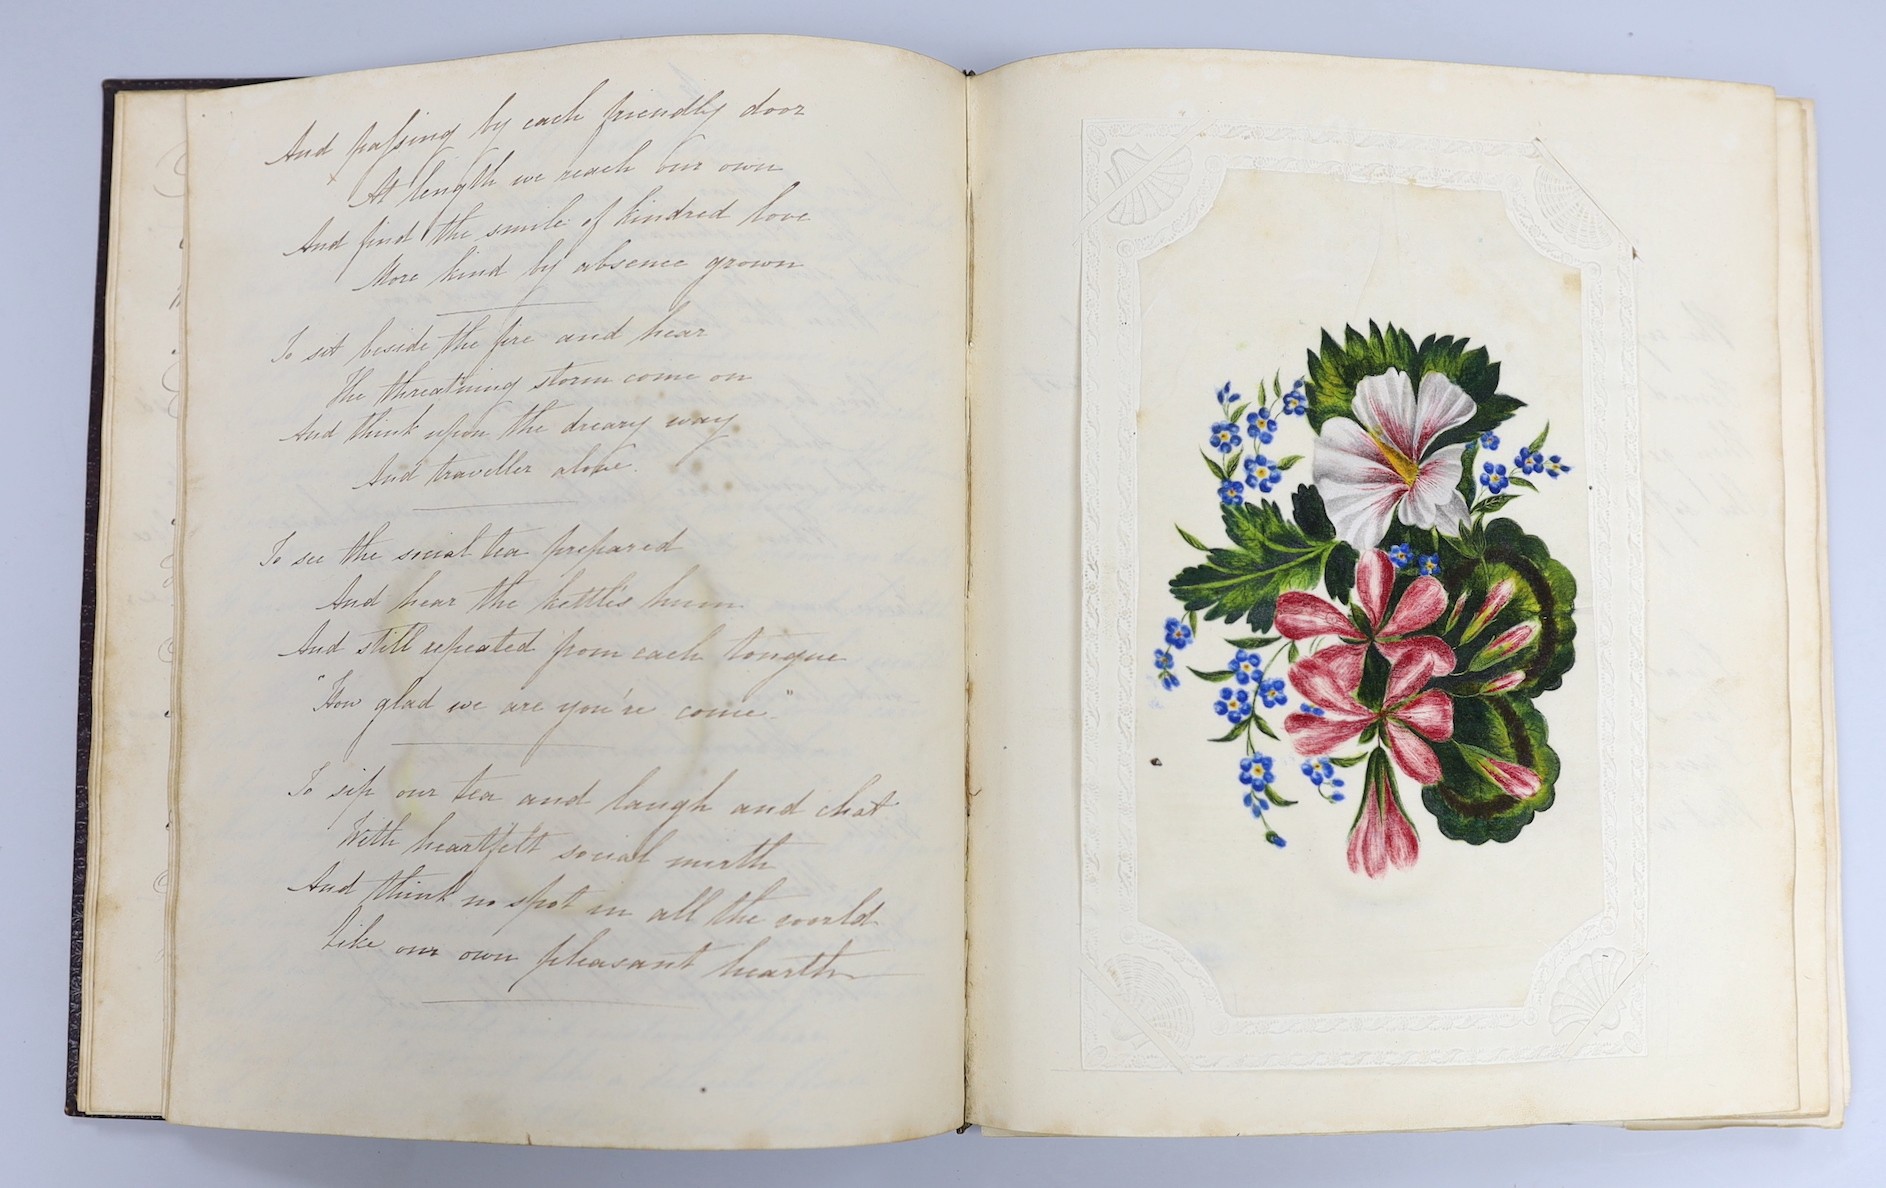 And passing by each friendly door
At length we reach our own
And find the smile of kindred love
More kind by absence grown
To sit beside the fire and hear
The threat'ning storm come on
And think upon the dreary way
And traveller alone.
To see the social tea prepared
And hear the kettle's hum
And still repeated from each tongue
"How glad we are you're come"
To sip our tea and laugh and chat
With heartfelt social mirth
And think no spot in all the world
Like our own pleasant hearth